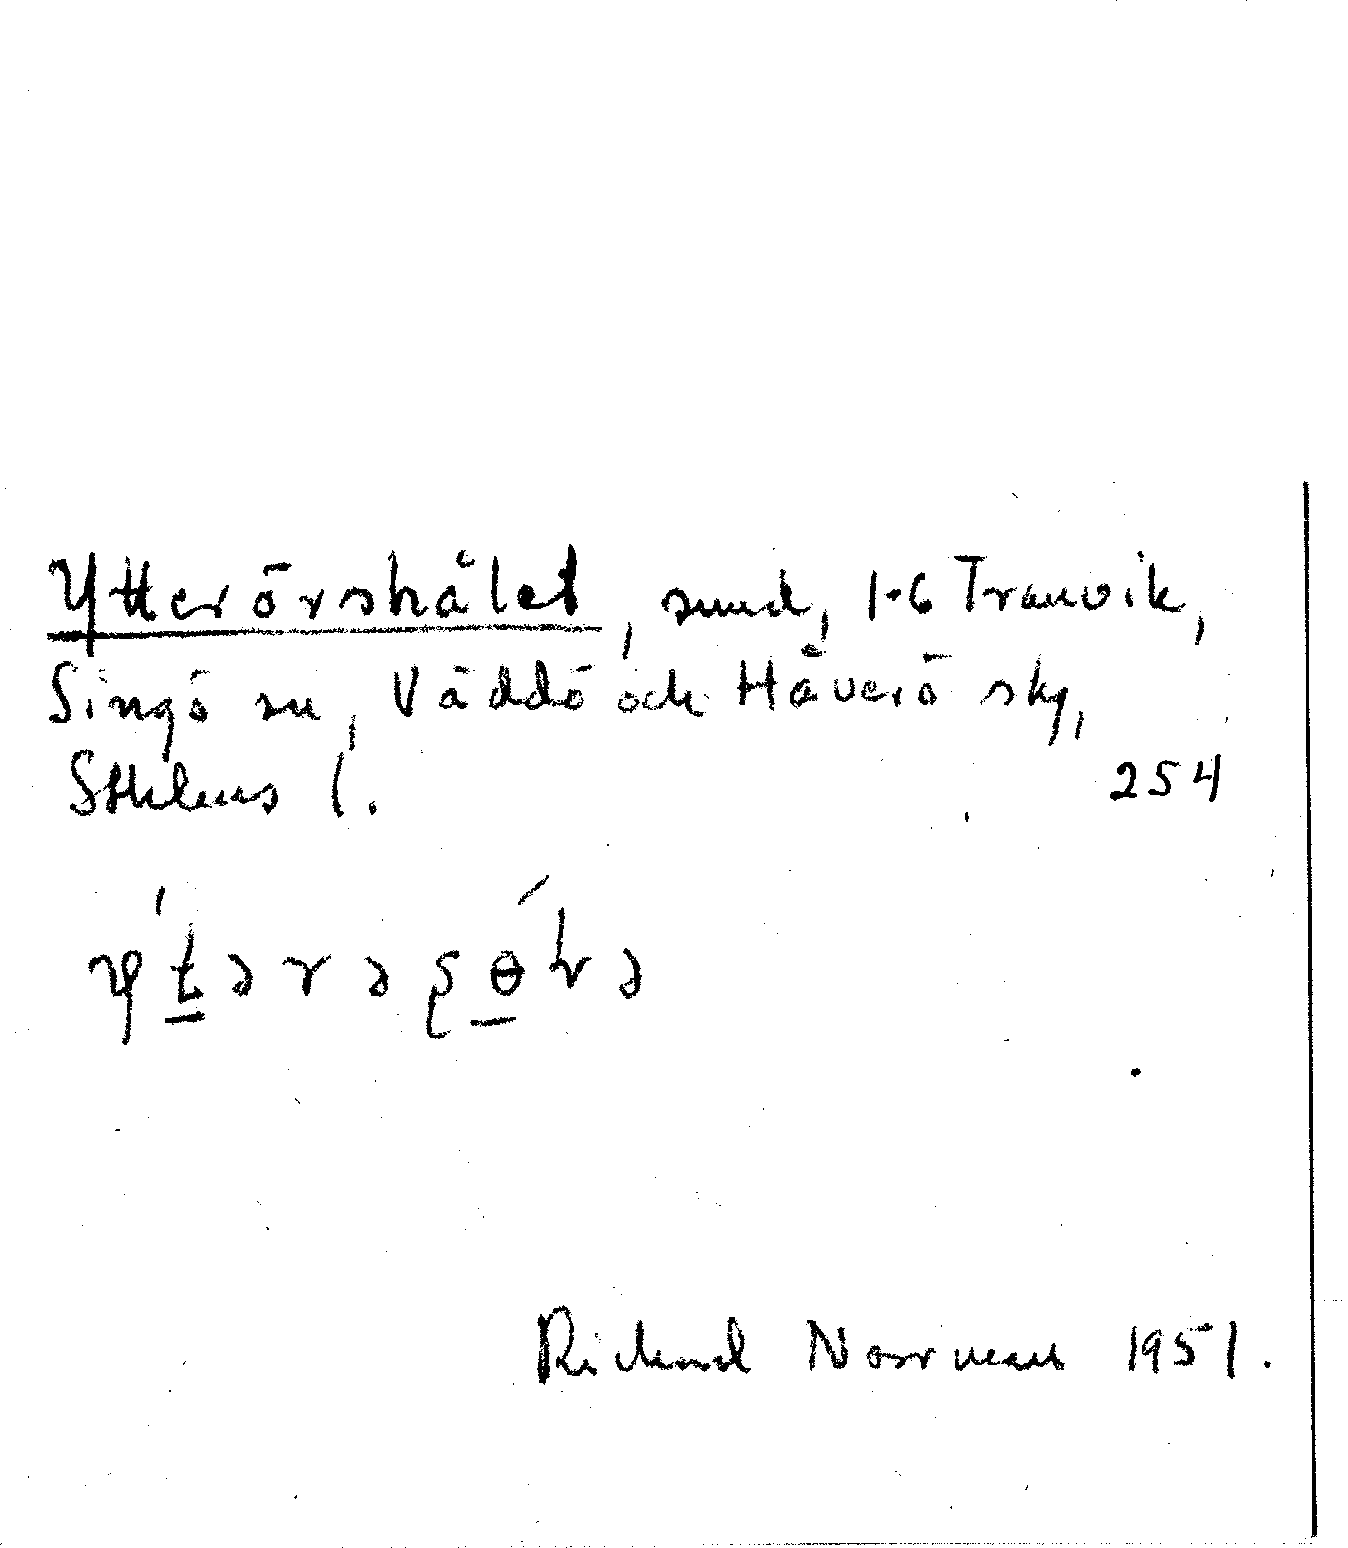 Ytterörshålet, sund, 1-6 Tranvik,
Singö sn, Väddö och Häverö sky,
Sthlms l.
254
Rickard Norrman 1951.